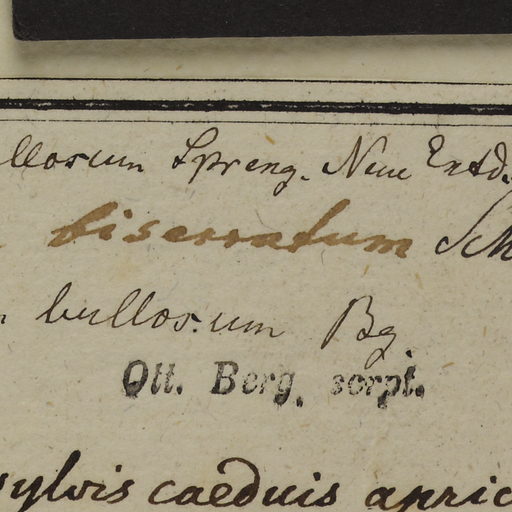 llosum Spreng. Neue Entd.
biserratum Sch
bullosum Bg.
Ott. Berg. scrpt.
sylvis caeduis apric